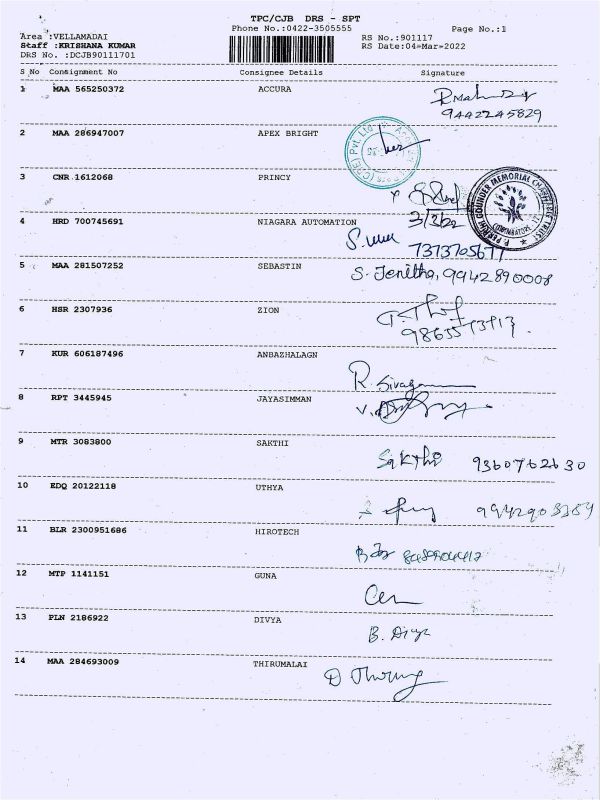 TPC/CJB DRS - SPT
Area :VELLAMADAI Phone No.:0422-3505555 Page No.:1
Staff :KRISHANA KUMAR RS No.:901117
DRS No. :DCJB90111701 RS Date:04=Mar=2022
S No Consignment No Consignee Details Signature
1 MAA 565250372 ACCURA
9442245829
2 MAA 286947007 APEX BRIGHT
3 CNR 1612068 PRINCY
4 HRD 700745691 NIAGARA AUTOMATION 3/3/22
7373705677
5 MAA 281507252 SEBASTIN S. Jenitha, 9942890008
6 HSR 2307936 ZION
7 KUR 606187496 ANBAZHALAGN
R. Sivag
8 RPT 3445945 JAYASIMMAN
9 MTR 3083800 SAKTHI
Sakthi 9360762630
10 EDQ 20122118 UTHYA
11 BLR 2300951686 HIROTECH
12 MTP 1141151 GUNA
13 PLN 2186922 DIVYA
B. Divya
14 MAA 284693009 THIRUMALAI